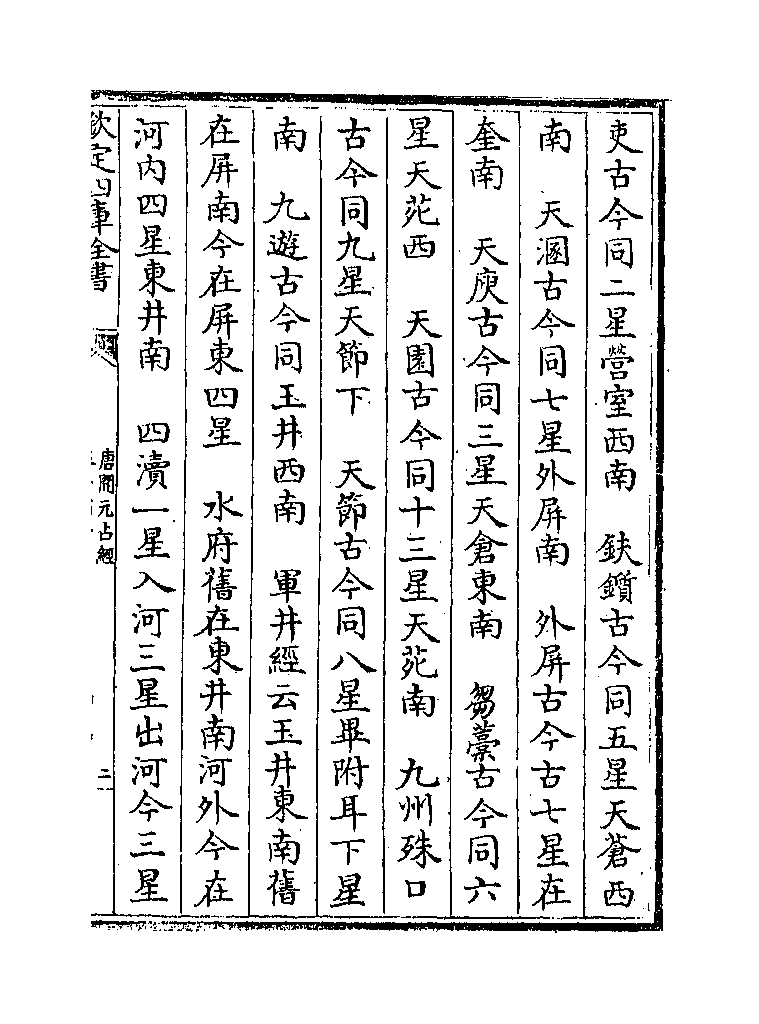 吏古今同二星營室西南　鈇鑕古今同五星天蒼西
南　天溷古今同七星外屏南　外屏古今古七星在
奎南　天庾古今同三星天倉東南　芻藁古今同六
星天苑西　天園古今同十三星天苑南　九州殊口
古今同九星天節下　天節古今同八星畢附耳下星
南　九遊古今同玉井西南　軍井經云玉井東南舊
在屏南今在屏東四星　水府舊在東井南河外今在
河内四星東井南　四瀆一星入河三星出河今三星
欽定四庫全書
唐開元占經